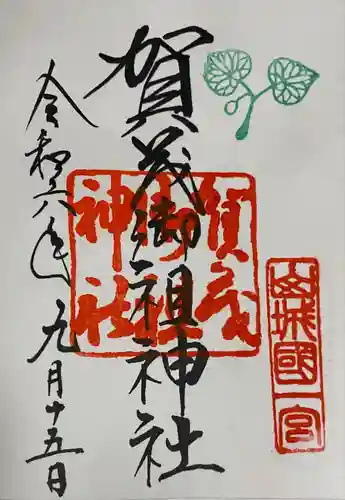 山城國一宮
賀茂御祖神社
賀茂御祖神社
令和六年九月十五日